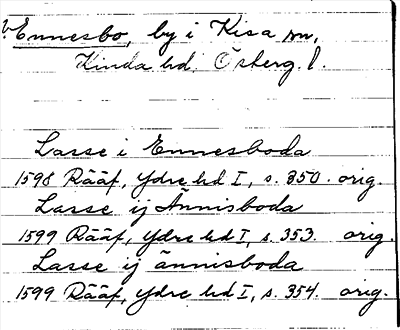 v. Ennesbo, by i Kisa sn,
Kinda hd, Österg. l.
Lasse i Ennesboda
1598 Rääf, Ydre hd I, s. 350. orig.
Lasse ij Ännisboda
1599 Rääf, Ydre hd I, s. 353. orig.
Lasse ij ännisboda
1599 Rääf, Ydre hd I, s. 354. orig.